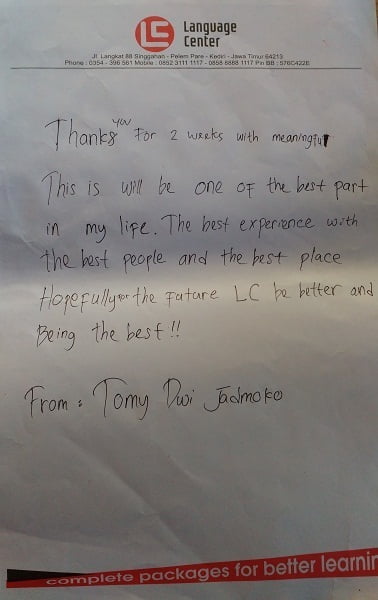 LC
Language
Center
Jl. Langkat 88 Singgahan - Pelem Pare - Kediri - Jawa Timur 64213
Phone : 0354 - 396 561 Mobile : 0852 3111 1117 - 0858 6888 1117 Pin BB : 576C422E
Thanks you For 2 weeks with meaningful
This is will be one of the best part
in my life. The best experience with
the best people and the best place
Hopefully for the future LC be better and
Being the best !!
From : Tomy Dwi Jadmoko
complete packages for better learnin